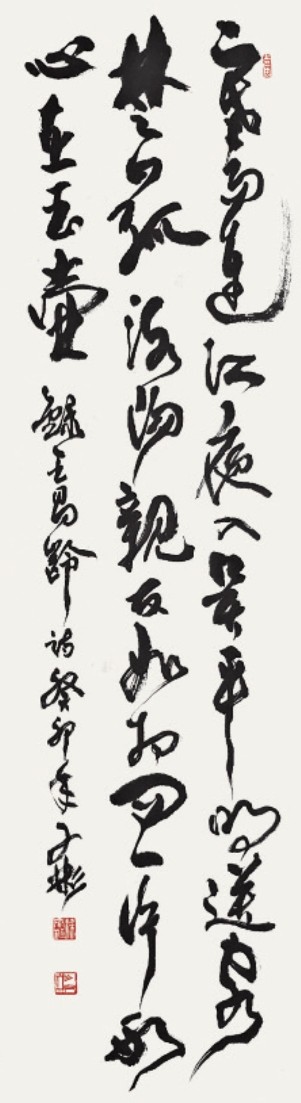 寒雨連江夜入吳平明送客
楚山孤洛陽親友如相問一片冰
心在玉壺錄王昌齡詩癸卯年彬